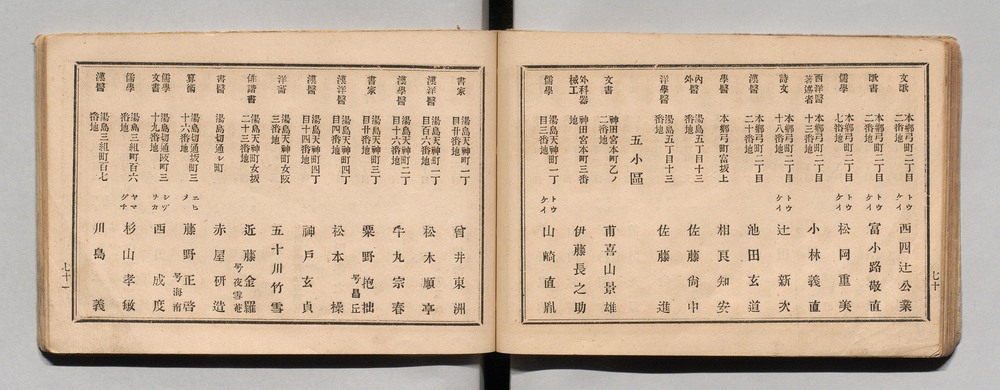 文歌 本郷弓町二丁目二番地 トウケイ 西四辻公業
歌書 本郷弓町二丁目二番地 トウケイ 富小路敬直
儒學 本郷弓町二丁目七番地 トウケイ 松岡重美
西洋醫著述者 本郷弓町二丁目十三番地 小林義直
詩文 本郷弓町二丁目十八番地 トウケイ 辻新次
漢醫 本郷弓町二丁目二十番地 池田玄道
學醫 本郷弓町富坂上 相良知安
內外醫 湯島五丁目十三番地 佐藤尙中
洋學醫 湯島五丁目十三番地 佐藤進
五小區
文書 神田宮本町乙ノ二番地 甫喜山景雄
外科器械工 神田宮本町三番地 伊藤長之助
儒學 湯島天神町一丁目三番地 トウケイ 山崎直胤
七十
書家 湯島天神町一丁目廿番地 曾井東洲
漢洋醫 湯島天神町二丁目百六番地 松木順亭
儒學醫 湯島天神町二丁目十六番地 牛丸宗春
書家 湯島天神町三丁目廿番地 粟野抱拙 号畠丘
漢洋醫 湯島天神町四丁目四番地 松本操
漢醫 湯島天神町四丁目十四番地 神戸玄貞
洋畵 湯島天神町女阪三番地 五十川竹雪
俳諧書 湯島天神町女坂二十三番地 近藤金羅 号夜雪菴
書醫 湯島切通シ町 赤屋硏造
算術 湯島切通坂町三十六番地 エヒメ 藤野正啓 号海南
儒學文書 湯島切通阪町三十九番地 シヅヲカ 西成度
儒學 湯島三組町百六番地 ヤマグチ 杉山孝敏
漢醫 湯島三組町百七番地 川島義
七十一